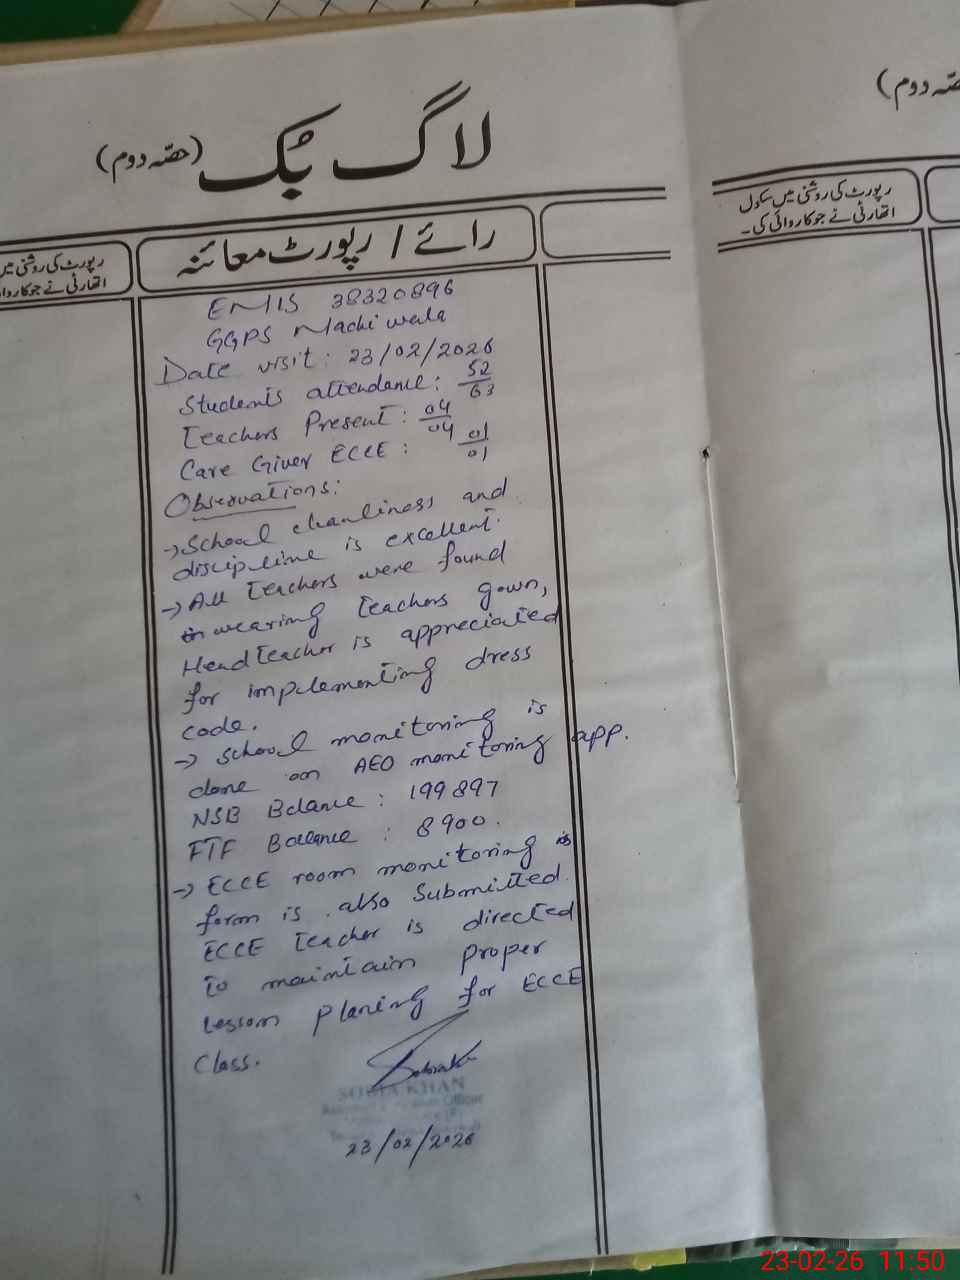 لاگ بُک (حصّہ دوم)
حصّہ دوم)
رپورٹ کی روشنی میں
اتھارٹی نے جو کاروا
رائے / رپورٹ معائنہ
رپورٹ کی روشنی میں سکول
اتھارٹی نے جو کاروائی کی۔
EMIS 38320896
GGPS Machi wala
Date visit: 23/02/2026
Students attendance: 52/63
Teachers Present: 04/04
Care Giver ECCE: 01/01
Observations:
→ School cleanliness and
discipline is excellent.
→ All teachers were found
in wearing teachers gown,
Head teacher is appreciated
for implementing dress
code.
→ School monitoring is
done on AEO monitoring app.
NSB Balance: 199897
FTF Balance: 8900.
→ ECCE room monitoring is
form is also submitted.
ECCE teacher is directed
to maintain proper
lesson planing for ECCE
Class.
KHAN
Officer
23/02/2026
23-02-26 11:50